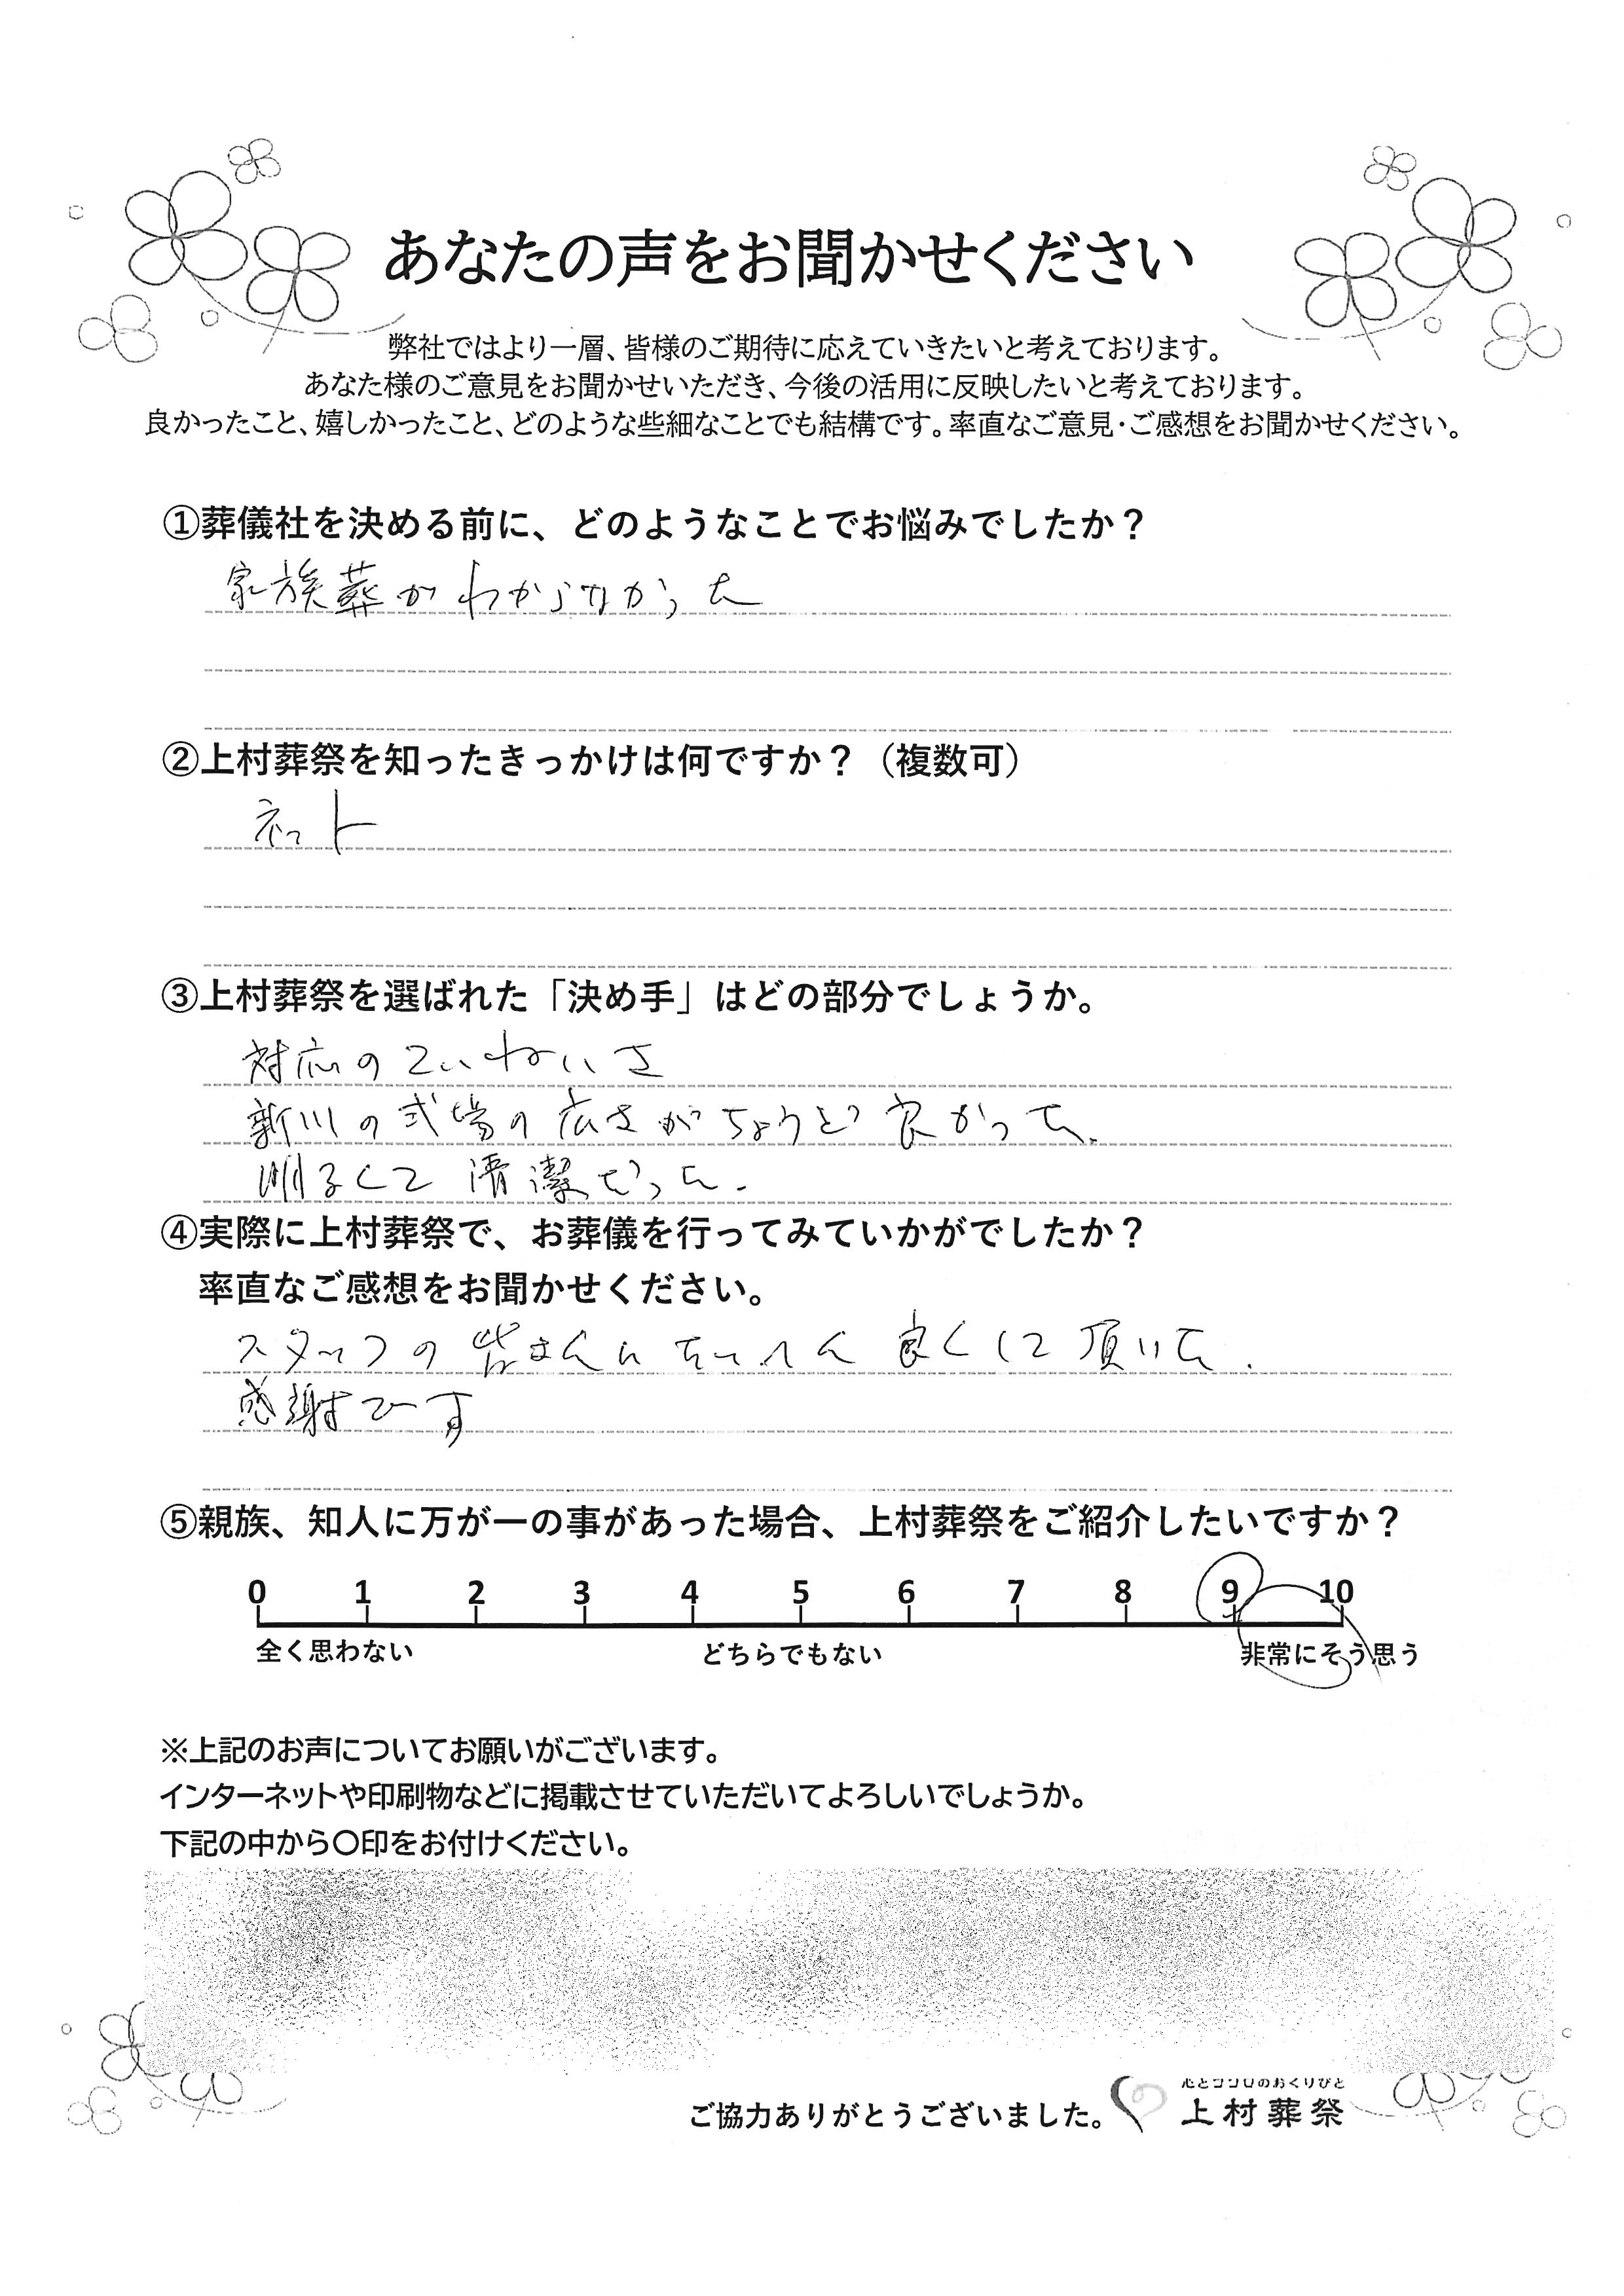 あなたの声をお聞かせください
弊社ではより一層、皆様のご期待に応えていきたいと考えております。
あなた様のご意見をお聞かせいただき、今後の活用に反映したいと考えております。
良かったこと、嬉しかったこと、どのような些細なことでも結構です。率直なご意見・ご感想をお聞かせください。
①葬儀社を決める前に、どのようなことでお悩みでしたか？
家族葬がわからなかった
②上村葬祭を知ったきっかけは何ですか？（複数可）
ネット
③上村葬祭を選ばれた「決め手」はどの部分でしょうか。
対応のていねいさ
新川の式場の広さがちょうど良かった.
明るくて清潔だった.
④実際に上村葬祭で、お葬儀を行ってみていかがでしたか？
率直なご感想をお聞かせください。
スタッフの皆さんにたいへん良くして頂いた.
感謝です
⑤親族、知人に万が一の事があった場合、上村葬祭をご紹介したいですか？
0 1 2 3 4 5 6 7 8 9 10
全く思わない どちらでもない 非常にそう思う
※上記のお声についてお願いがございます。
インターネットや印刷物などに掲載させていただいてよろしいでしょうか。
下記の中から〇印をお付けください。
心とココロのおくりびと
ご協力ありがとうございました。 上村葬祭